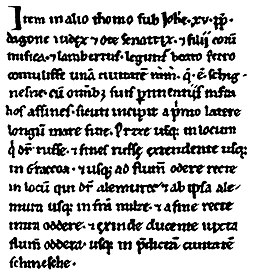 Item in alio thomo sub Iohe. xv. pp.
dagone iudex & ote senatrix. & filii eoru
misica. & lambertus. legunt beato petro
contulisse una ciuitate in int. q. e. schig-
nesne. cu omib; suis ptinentiis infra
hos affines. sicuti incipit a pmo latere
longu mare fine. Pruzze usq; in locum
q dr russe. & fines russe extendente usq;
in craccoa. & usq; ad flum oddere recte
in locu qui dr alemure. & ab ipsa ale-
mura usq; in tra milze. & a fine recte
intra oddere. & exinde ducente iuxta
flum oddera. usq; in pdicta ciuitate
schinesche.